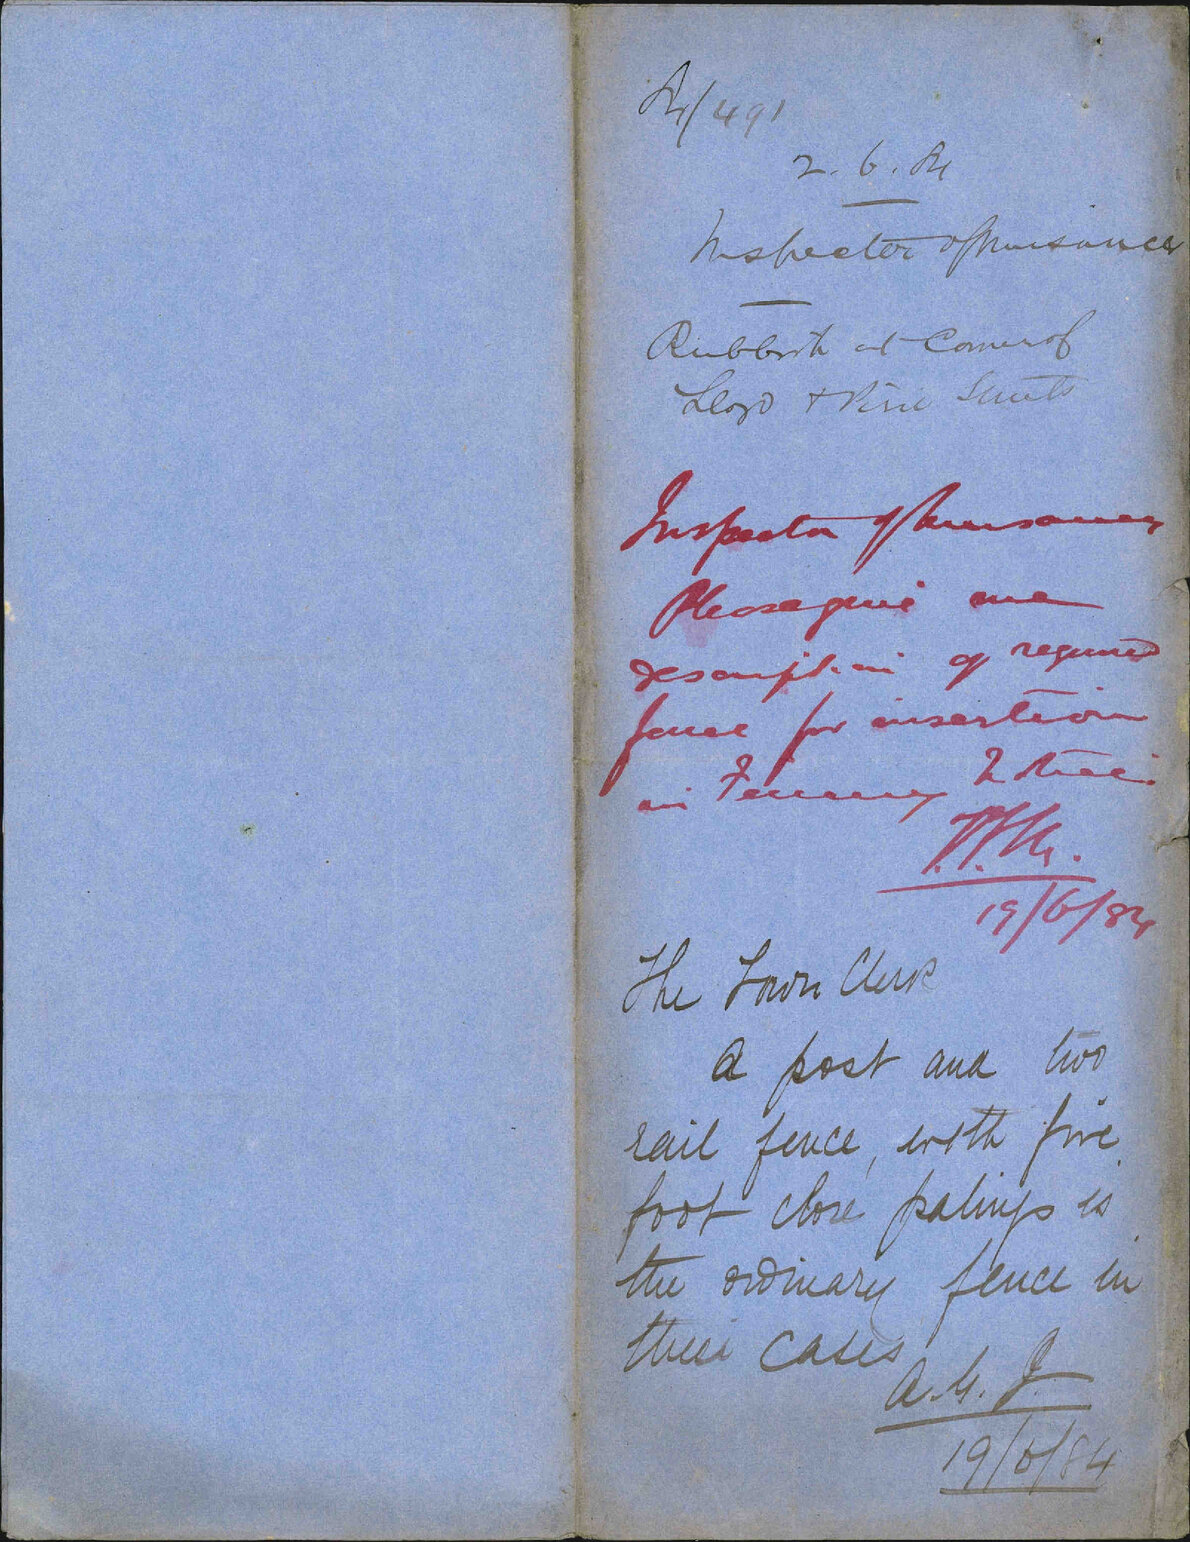 84/491
2.6.84
Inspector of Nuisances
Rubbish at Corner of
Lloyd & Streets
Inspector of Nuisances
Please give me
description of required
fence for insertion
in Fencing Notice
19/6/84
The Town Clerk
A post and two
rail fence, with five
foot close palings is
the ordinary fence in
these cases
A.G.J.
19/6/84